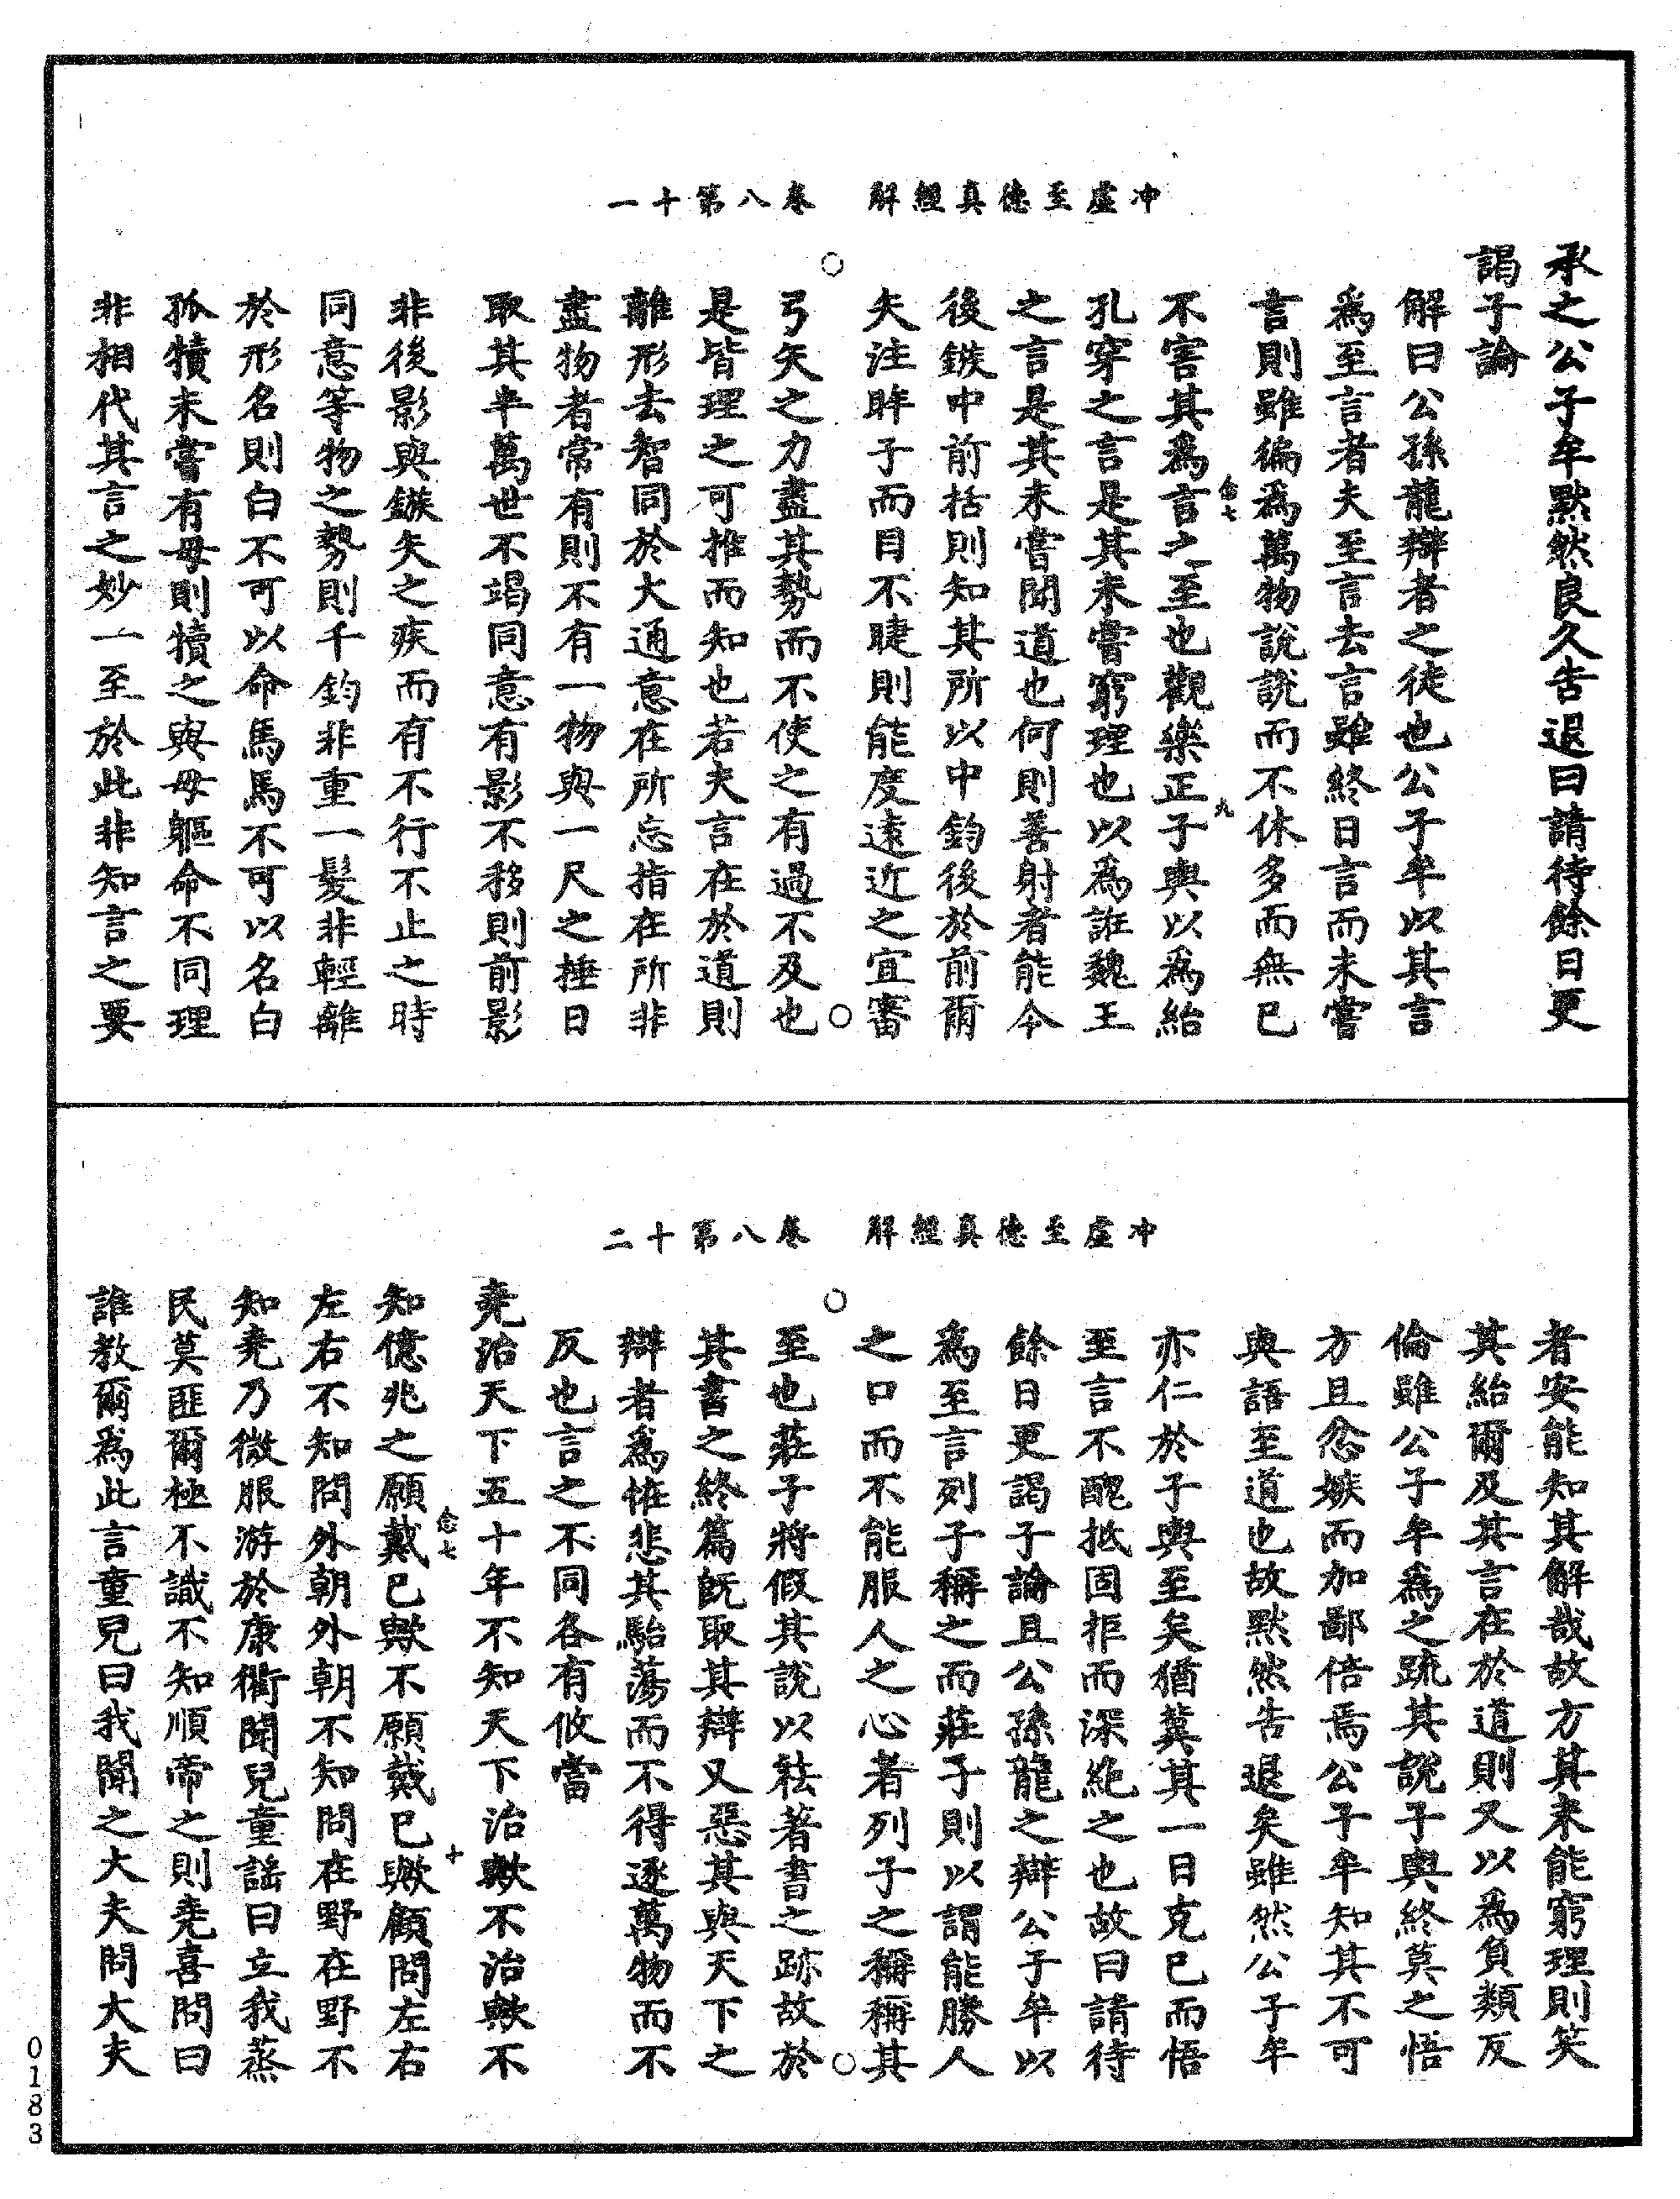 冲虛至德真經解　卷八第十一
承之公子牟默然良久告退曰請待餘日更
謁子論
解曰公孫龍辯者之徒也公子牟以其言
爲至言者夫至言去言雖終日言而未嘗
言則雖徧爲萬物說說而不休多而無已
不害其爲言之至也觀樂正子輿以爲紿
孔穿之言是其未嘗窮理也以爲誑魏王
之言是其未嘗聞道也何則善射者能令
後鏃中前括則知其所以中鈞後於前爾
矢注眸子而目不睫則能度遠近之宜審
弓矢之力盡其勢而不使之有過不及也
是皆理之可推而知也若夫言在於道則
離形去智同於大通意在所忘指在所非
盡物者常有則不有一物與一尺之捶日
取其半萬世不竭同意有影不移則前影
非後影與鏃矢之疾而有不行不止之時
同意等物之勢則千鈞非重一髮非輕離
於形名則白不可以命馬馬不可以名白
孤犢未嘗有母則犢之與母軀命不同理
非相代其言之妙一至於此非知言之要
念七
九
冲虛至德真經解　卷八第十二
者安能知其解哉故方其未能窮理則笑
其紿爾及其言在於道則又以爲負類反
倫雖公子牟爲之䟽其說子輿終莫之悟
方且忿嫉而加鄙倍焉公子牟知其不可
與語至道也故默然告退矣雖然公子牟
亦仁於子輿至矣猶冀其一日克已而悟
至言不醜抵固拒而深絕之也故曰請待
餘日更謁子論且公孫龍之辯公子牟以
爲至言列子稱之而莊子則以謂能勝人
之口而不能服人之心者列子之稱稱其
至也莊子將假其說以祛著書之跡故於
其書之終篇旣取其辯又惡其與天下之
辯者爲怪悲其駘蕩而不得逐萬物而不
反也言之不同各有攸當
堯治天下五十年不知天下治歟不治歟不
知億兆之願戴已歟不願戴已歟顧問左右
左右不知問外朝外朝不知問在野在野不
知堯乃微服游於康衢聞兒童謠曰立我蒸
民莫匪爾極不識不知順帝之則堯喜問曰
誰教爾爲此言童兒曰我聞之大夫問大夫
念七
十
0183